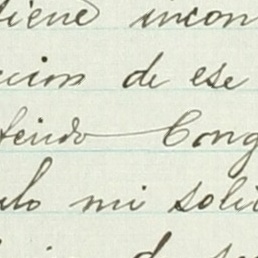 tiene incon
cion de ese
tendo Cong
ulo mi solic
de